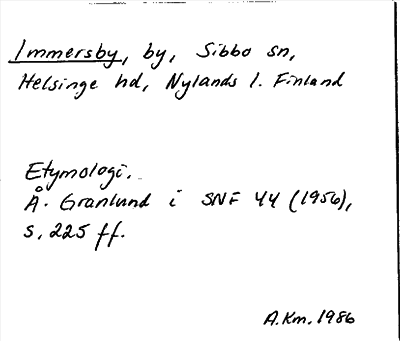 Immersby, by, Sibbo sn,
Helsinge hd, Nylands l. Finland
Etymologi.
Å. Granlund i SNF 44 (1956),
s. 225 ff.
A.Km. 1986